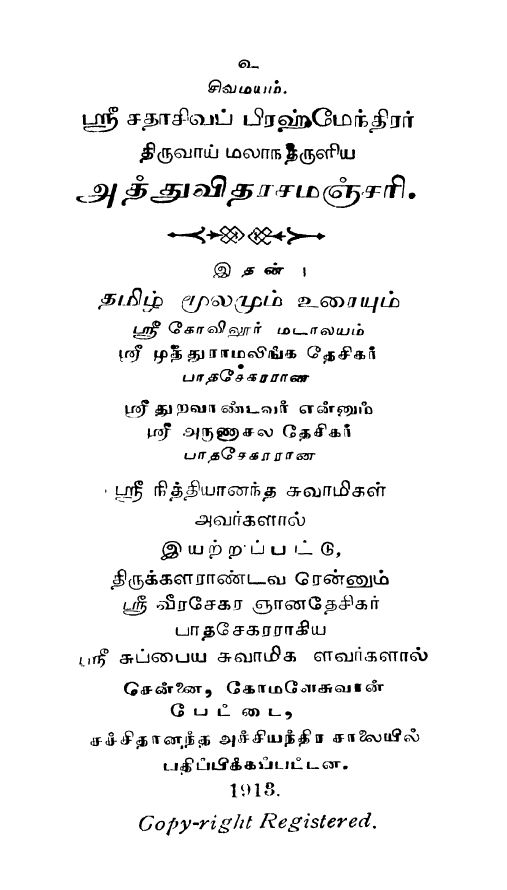 உ
சிவமயம்.
ஸ்ரீ சதாசிவப் பிரஹ்மேந்திரர்
திருவாய் மலர்ந்தருளிய
அத்துவிதரசமஞ்சரி.
இதன்
தமிழ் மூலமும் உரையும்
ஸ்ரீ கோவிலூர் மடாலயம்
ஸ்ரீ முத்துராமலிங்க தேசிகர்
பாதசேகரரான
ஸ்ரீ துறவாண்டவர் என்னும்
ஸ்ரீ அருணாசல தேசிகர்
பாதசேகரரான
ஸ்ரீ நித்தியானந்த சுவாமிகள்
அவர்களால்
இயற்றப்பட்டு,
திருக்களராண்டவ ரென்னும்
ஸ்ரீ வீரசேகர ஞானதேசிகர்
பாதசேகரராகிய
ஸ்ரீ சுப்பைய சுவாமிக ளவர்களால்
சென்னை, கோமளேசுவரன்
பேட்டை,
சச்சிதானந்த அச்சியந்திர சாலையில்
பதிப்பிக்கப்பட்டன.
1913.
Copy-right Registered.